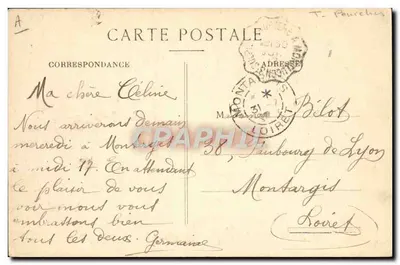 A
CARTE POSTALE
CORRESPONDANCE
ADRESSE
Ma chère Céline
Nous arriverons demain
mercredi à Montargis
à midi 17. En attendant
le plaisir de vous
voir nous vous
embrassons bien
tous les deux. Germaine
MONTARGIS
31
LOIRET
M Bélot
38, Faubourg de Lyon
Montargis
Loiret
CPARAMA